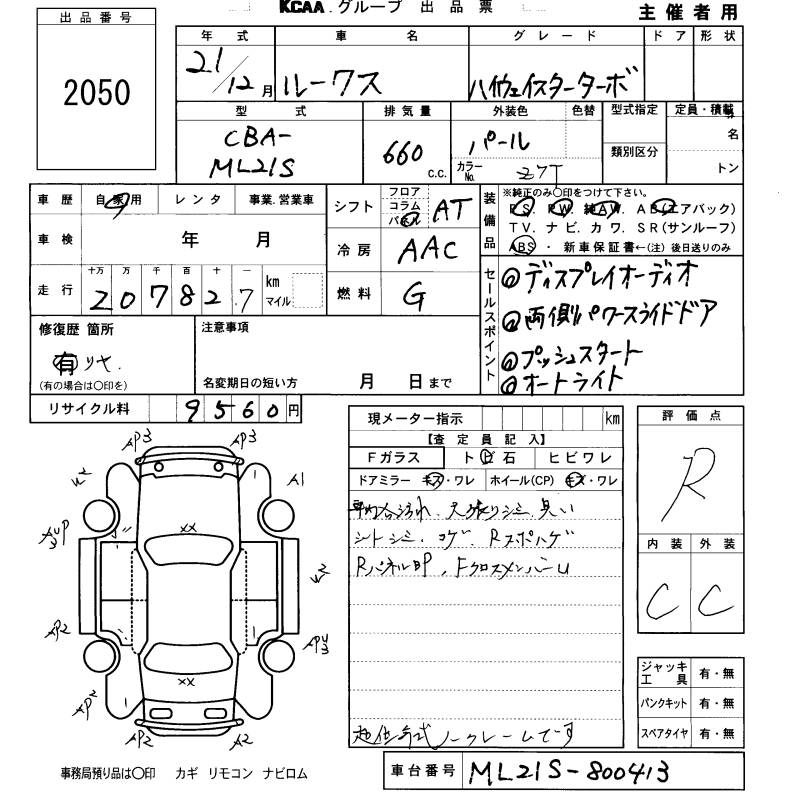 KCAA.グループ 出品票
主催者用
出品番号
2050
年式 車名 グレード ドア 形状
21/12月 ルークス ハイウェイスターターボ
型式 排気量 外装色 色替 型式指定 定員・積載
CBA-
ML21S
660 c.c.
パール
カラーNo. Z7T
類別区分
名
トン
車歴 自家用 レンタ 事業.営業車
車検 年 月
走行 十万 万 千 百 十 一 km マイル
207827
シフト フロア コラム パネル AT
冷房 AAC
燃料 G
装備品
※純正のみ○印をつけて下さい。
PS. PW. 純AW. AB(エアバック)
TV. ナビ. カワ. SR(サンルーフ)
ABS ・ 新車保証書←(注) 後日送りのみ
セールスポイント
◎ディスプレイオーディオ
◎両側パワースライドドア
◎プッシュスタート
◎オートライト
修復歴 箇所
有 リヤ.
(有の場合は○印を)
注意事項
名変期日の短い方 月 日まで
リサイクル料 9560円
現メーター指示 km
【査定員記入】
Fガラス トビ石 ヒビワレ
ドアミラー キズ・ワレ ホイール(CP) キズ・ワレ
車内汚れ. 天張りシミ. 臭い
シートシミ. コゲ. Rスポハゲ
RパネルAP. FクロスメンバーU
ノークレームです
評価点
R
内装 外装
C C
ジャッキ工具 有・無
パンクキット 有・無
スペアタイヤ 有・無
AP3 AP3
W2 A1
XX
W2
AP2
XX
AP2
AP2 A2
事務局預り品は○印 カギ リモコン ナビロム
車台番号 ML21S-800413